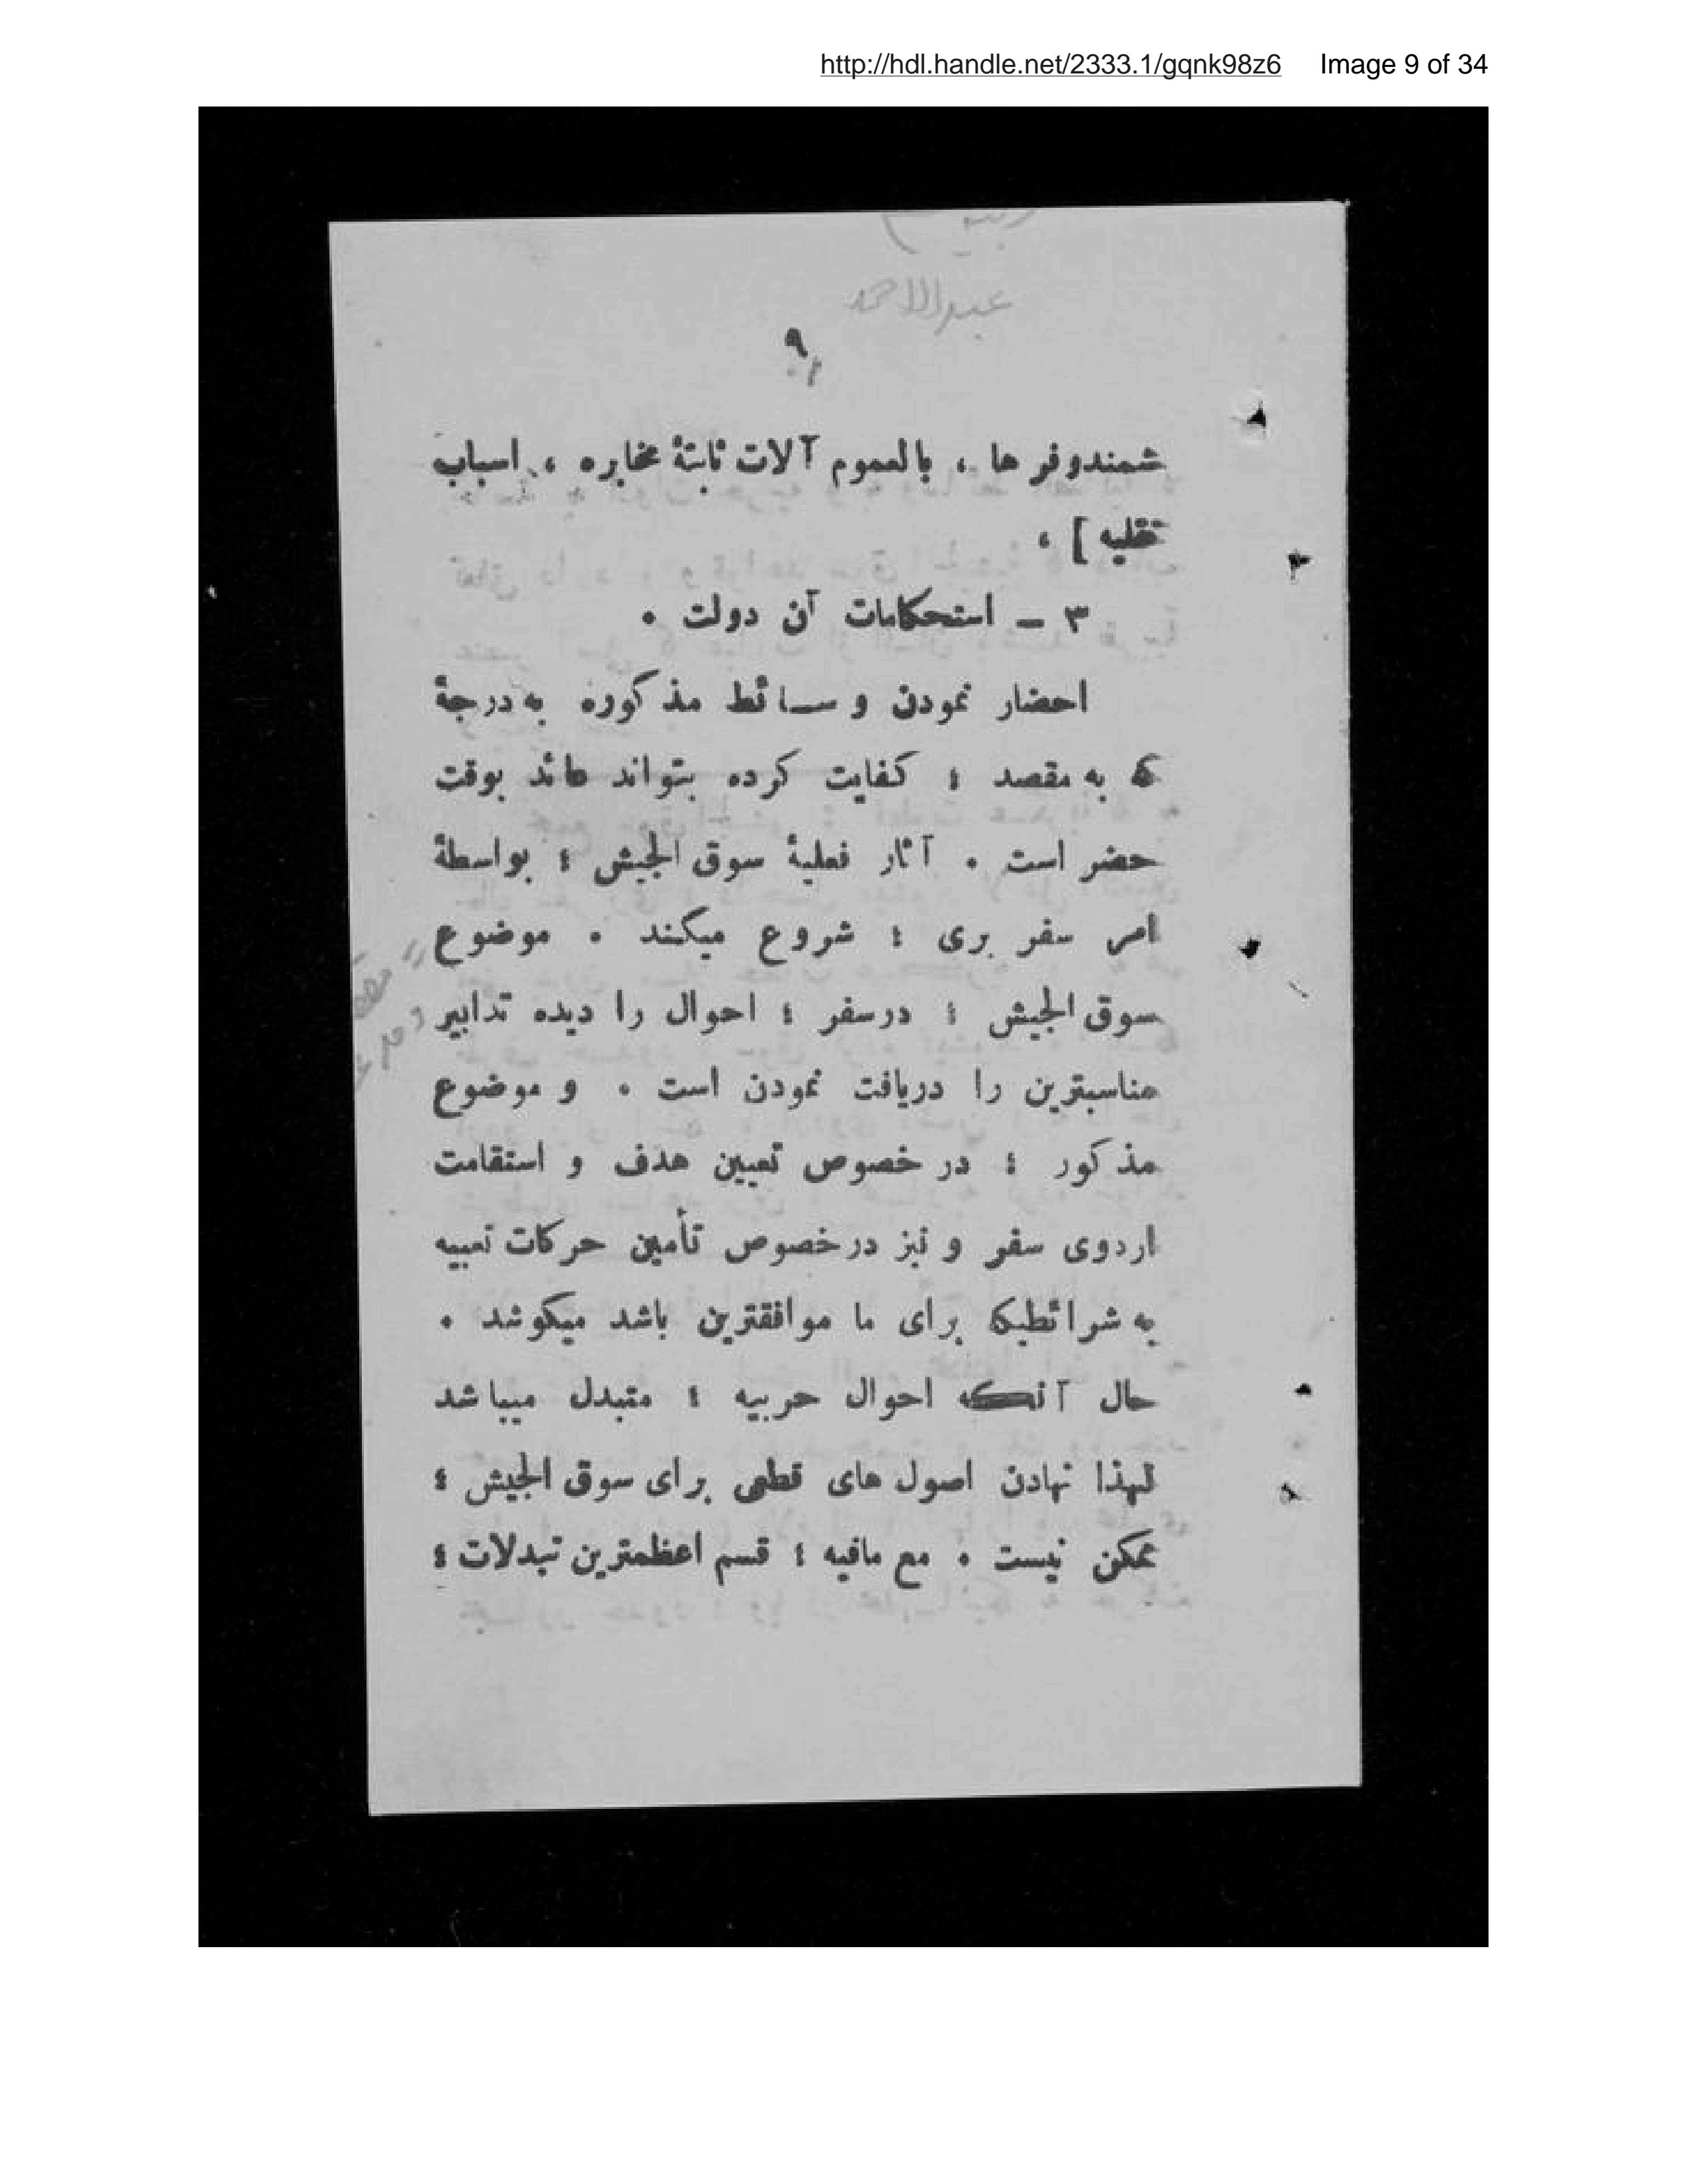 http://hdl.handle.net/2333.1/gqnk98z6 Image 9 of 34
عبدالاحمد
۹
شمندوفر ها ، بالعموم آلات ثابتهٔ مخابره ، اسباب
نقلیه ] ،
۳ — استحکامات آن دولت .
احضار نمودن و ســائط مذکوره به درجهٔ
که به مقصد ؛ کفایت کرده بتواند عائد بوقت
حضر است . آثار فعلیهٔ سوق الجیش ؛ بواسطهٔ
امر سفر بری ؛ شروع میکند . موضوع
سوق الجیش ؛ درسفر ؛ احوال را دیده تدابیر
مناسبترین را دریافت نمودن است . و موضوع
مذکور ؛ در خصوص تعیین هدف و استقامت
اردوی سفر و نیز درخصوص تأمین حرکات تعبیه
به شرائطیکه برای ما موافقترین باشد میکوشد .
حال آنکه احوال حربیه ؛ متبدل میباشد
لهذا نهادن اصول های قطعی برای سوق الجیش ؛
ممکن نیست . مع مافیه ؛ قسم اعظمترین تبدلات ؛